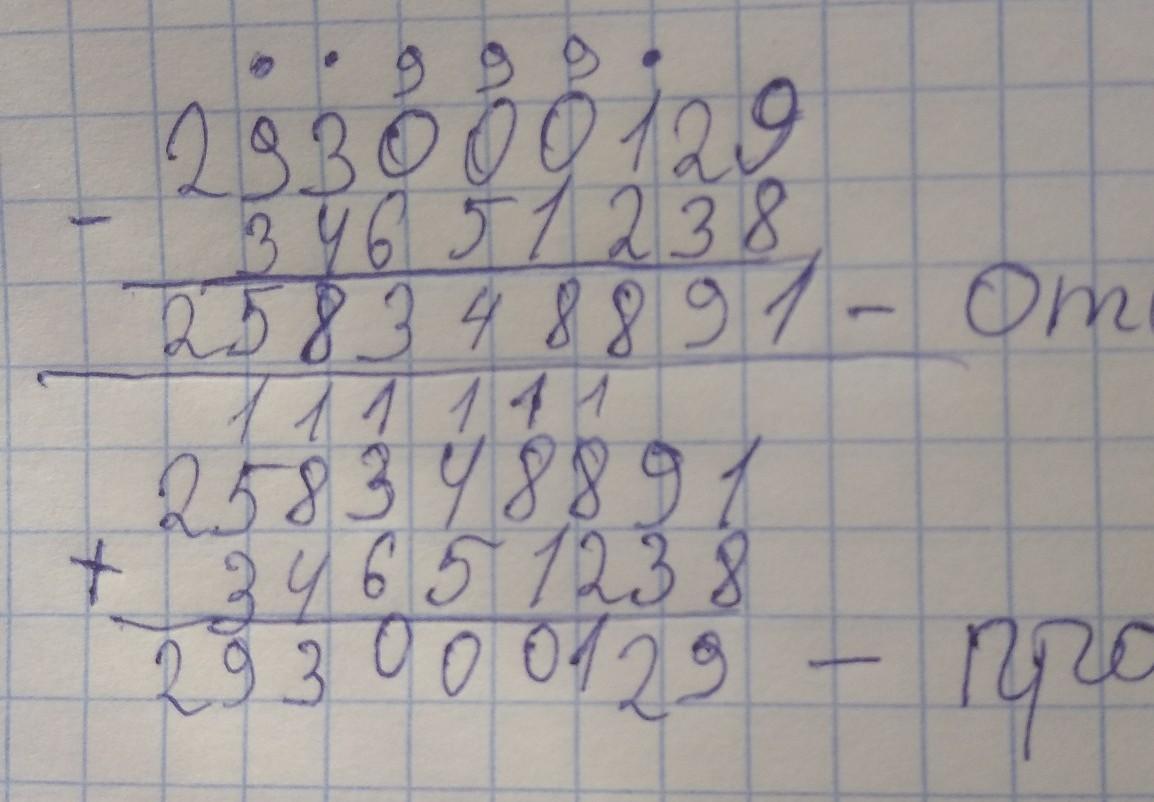 . . 9 9 9 .
293000129
-
34651238
258348891 -
1 1 1 1 1 1
258348891
+
34651238
293000129 -